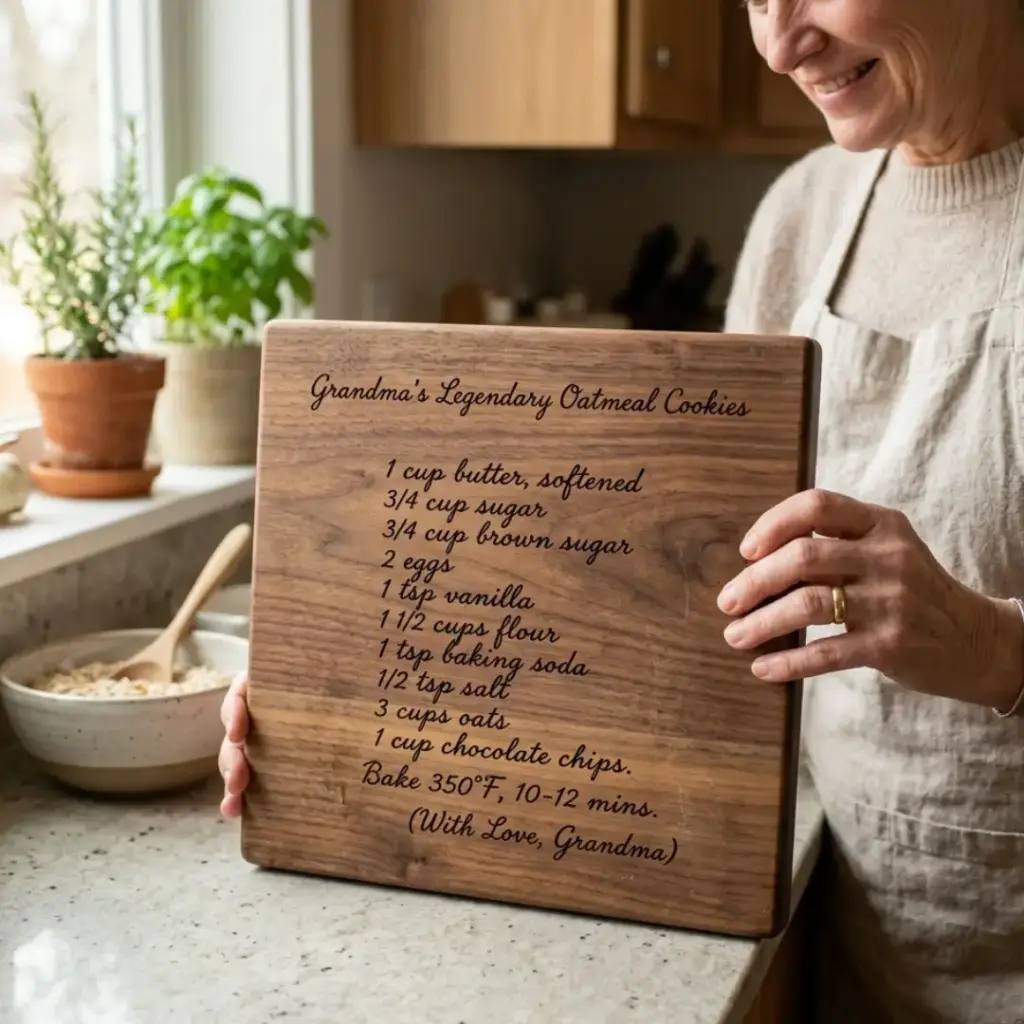 Grandma's Legendary Oatmeal Cookies
1 cup butter, softened
3/4 cup sugar
3/4 cup brown sugar
2 eggs
1 tsp vanilla
1 1/2 cups flour
1 tsp baking soda
1/2 tsp salt
3 cups oats
1 cup chocolate chips.
Bake 350°F, 10-12 mins.
(With Love, Grandma)